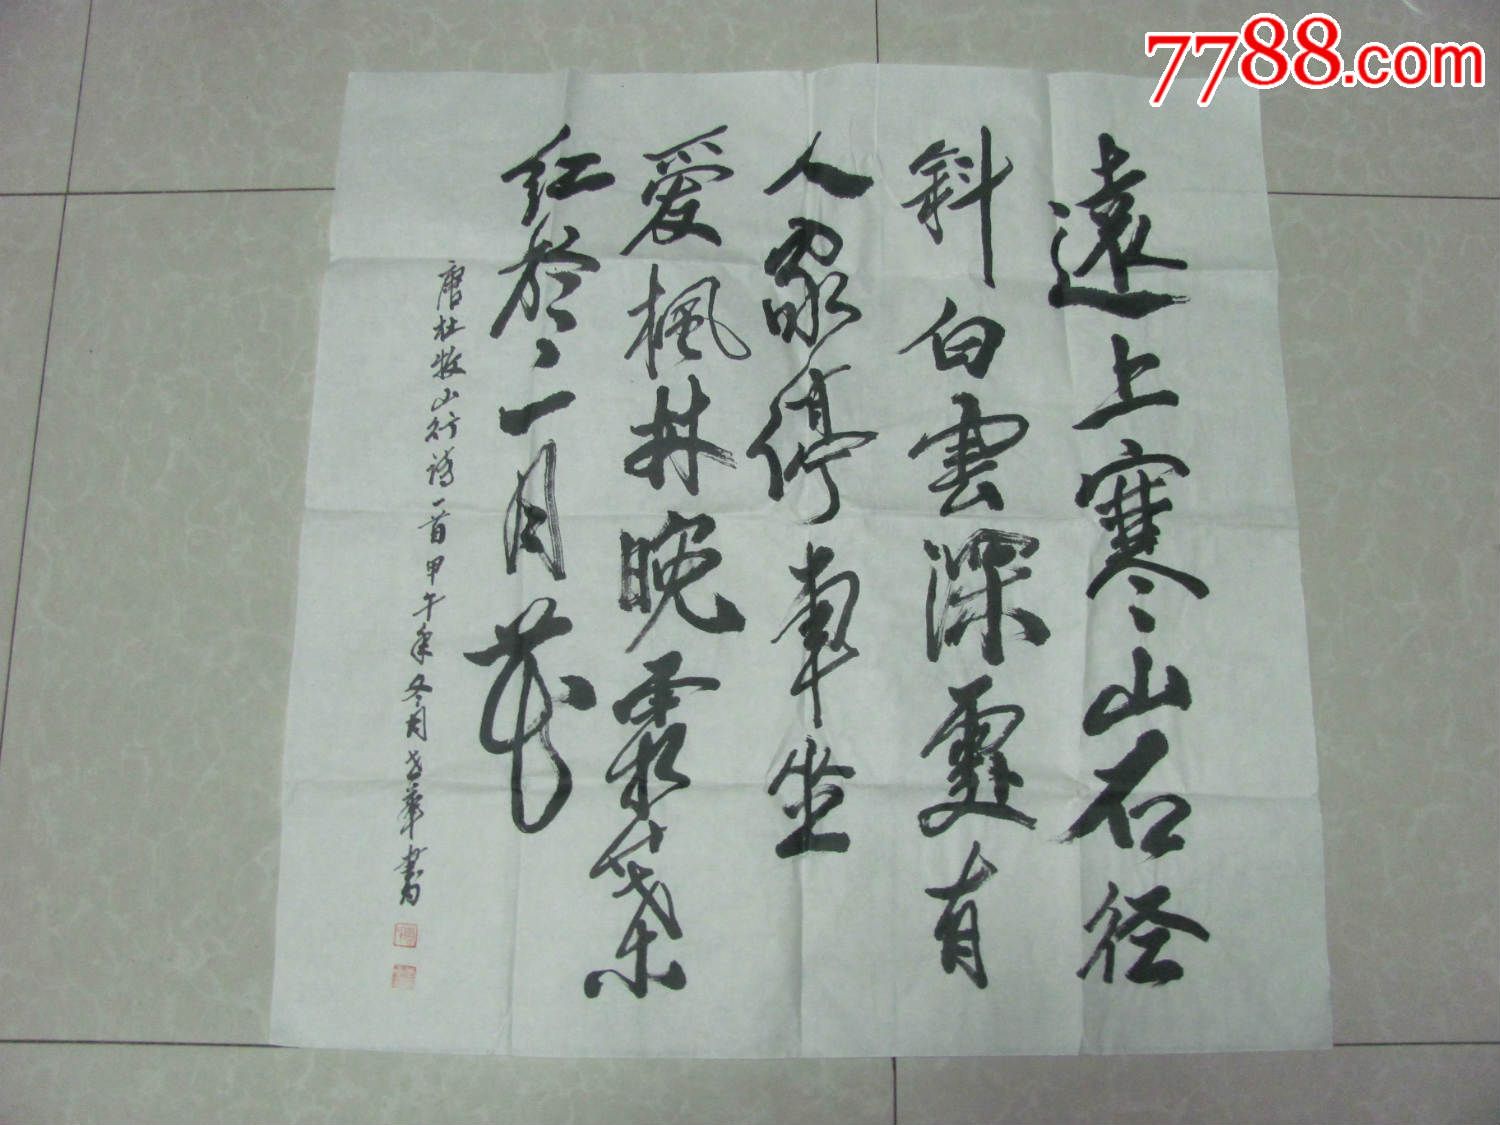 7788.com
遠上寒山石径
斜白雲深處有
人家停車坐
愛楓林晚霜葉
红於二月花
唐杜牧山行诗一首甲午年冬月華書